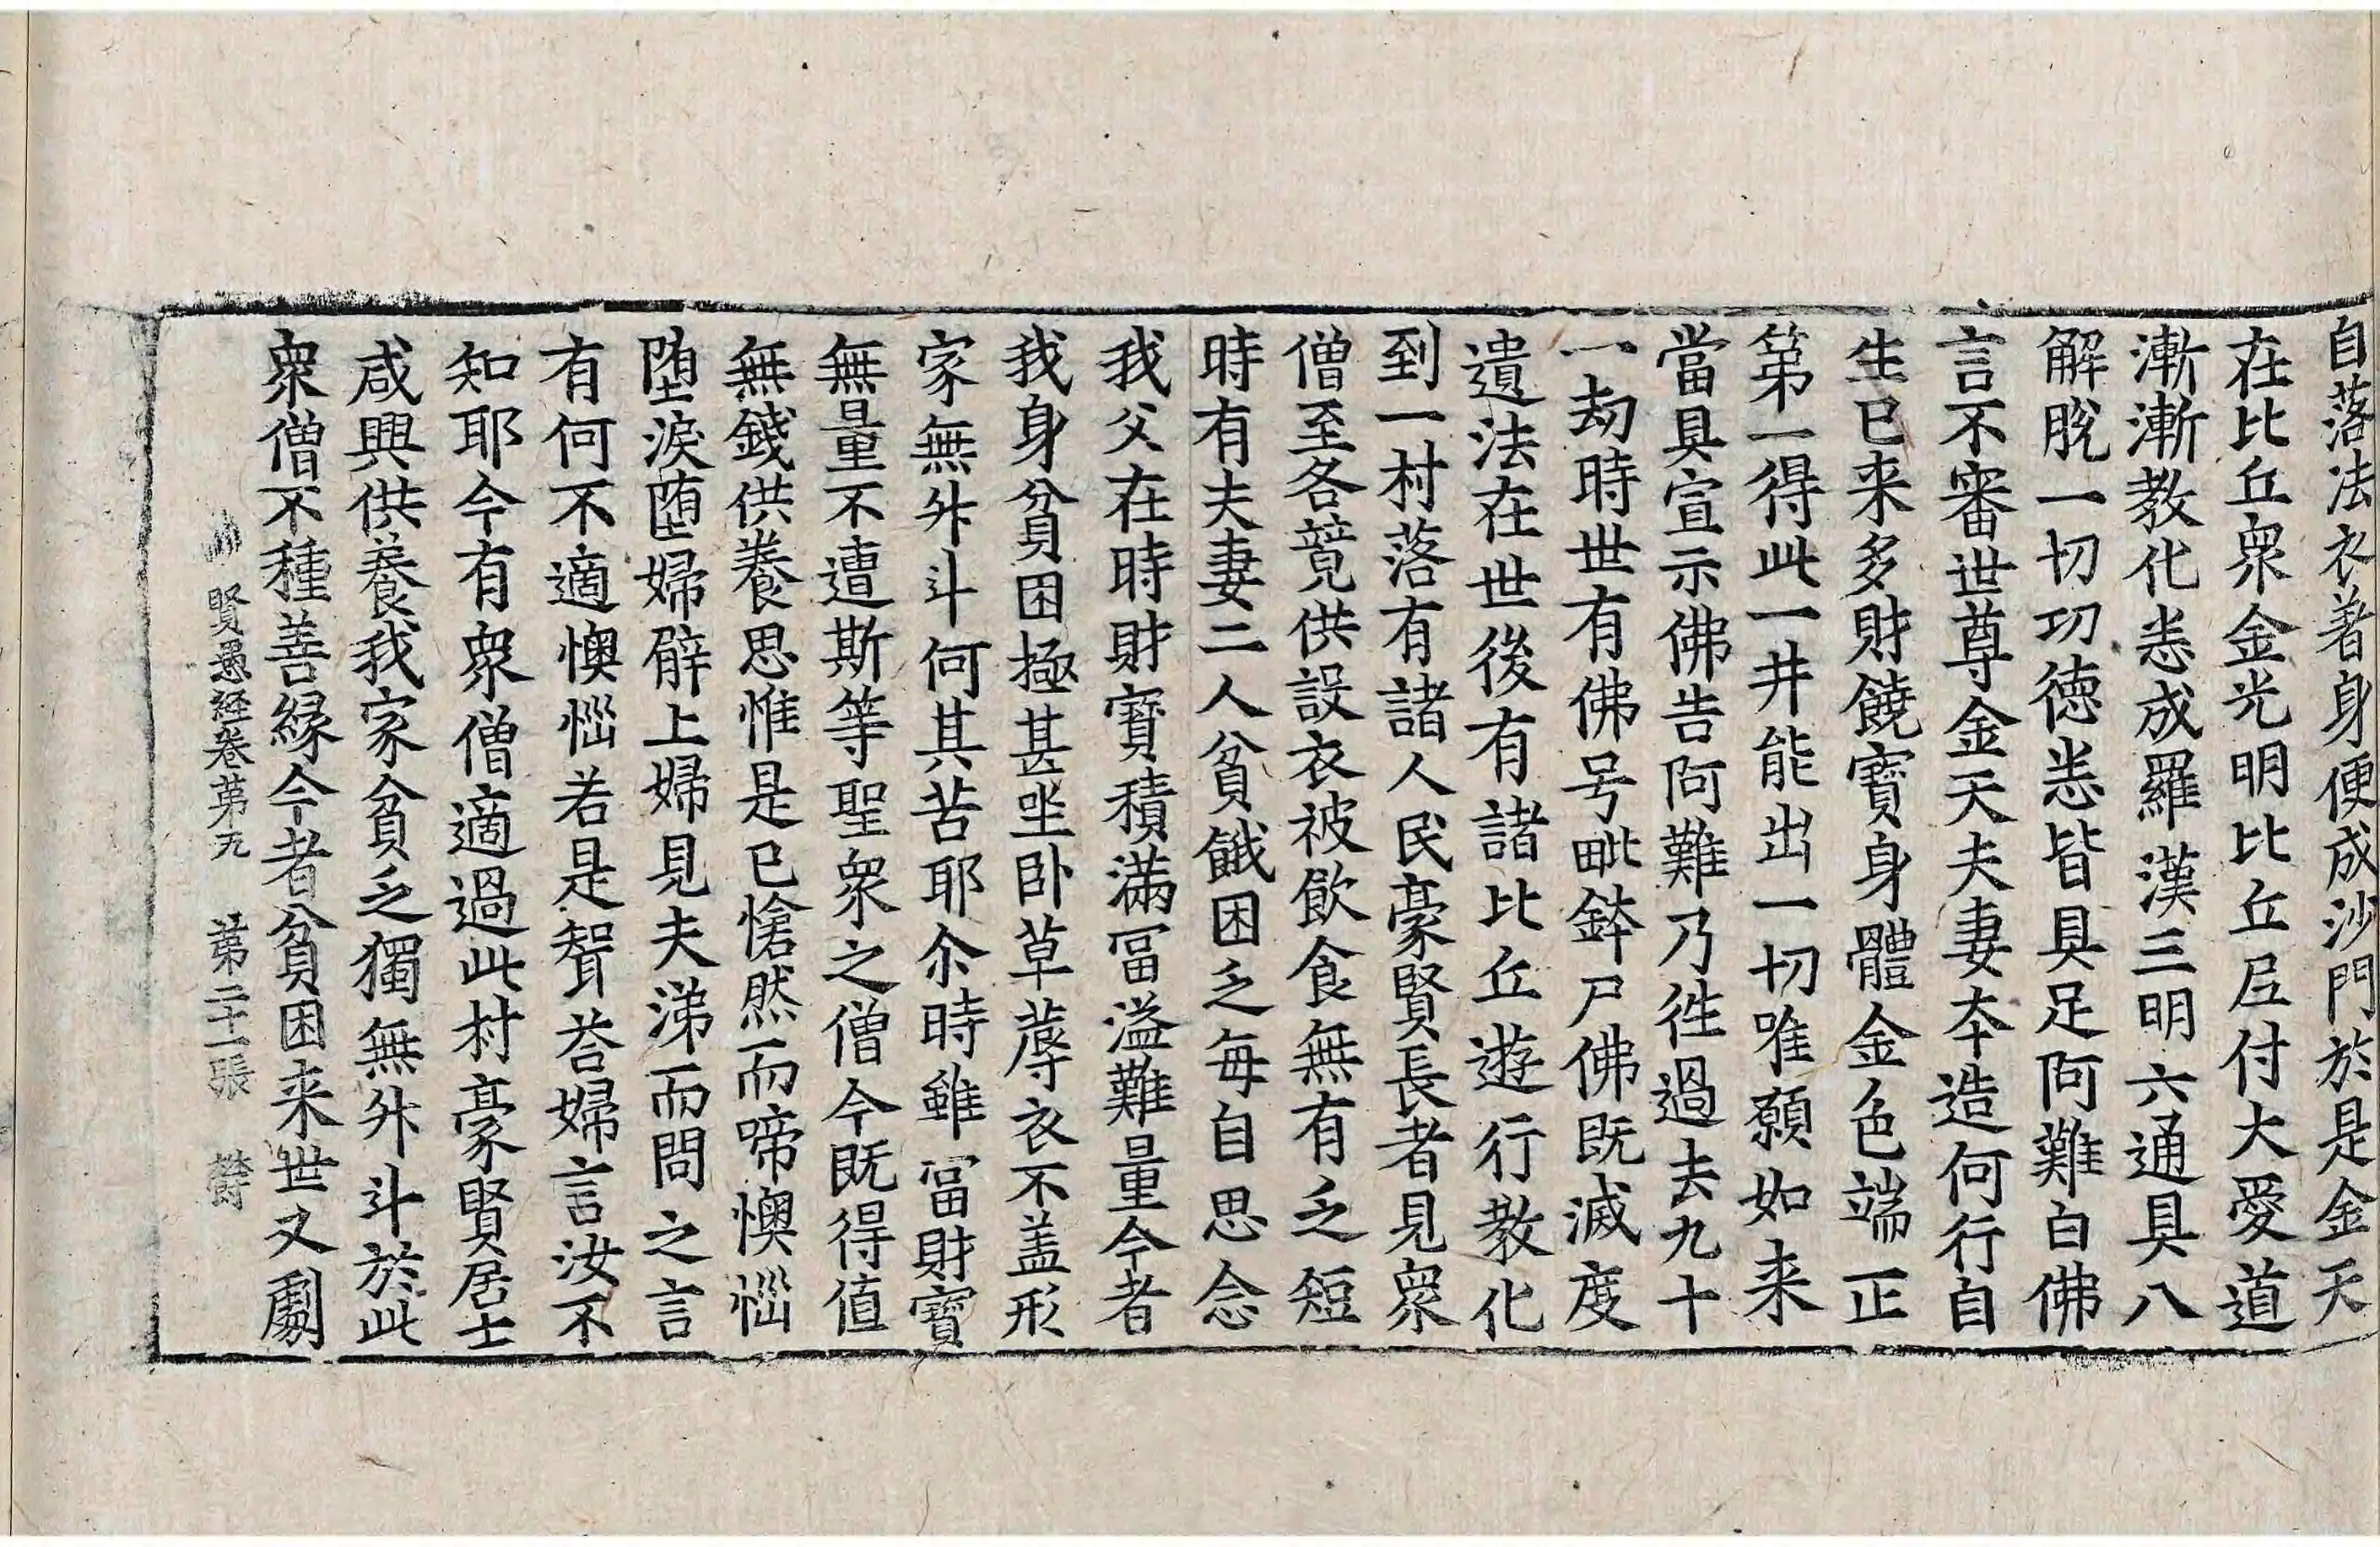 自落法衣著身便成沙門於是金天
在比丘衆金光明比丘尼付大愛道
漸漸教化悉成羅漢三明六通具八
解脫一切功德悉皆具足阿難白佛
言不審世尊金天夫妻夲造何行自
生已来多財饒寶身體金色端正
第一得此一井能出一切唯願如来
當具宣示佛告阿難乃徃過去九十
一劫時世有佛号毗鉢尸佛既滅度
遺法在世後有諸比丘遊行教化
到一村落有諸人民豪賢長者見衆
僧至各競供設衣被飲食無有乏短
時有夫妻二人貧餓困乏每自思念
我父在時財寶積滿冨溢難量今者
我身貧困極甚坐卧草蓐衣不盖形
家無升斗何其苦耶尒時雖冨財寶
無量不遭斯等聖衆之僧今既得值
無錢供養思惟是已愴然而啼懊惱
墮淚墮婦臂上婦見夫涕而問之言
有何不適懊惱若是聟荅婦言汝不
知耶今有衆僧適過此村豪賢居士
咸興供養我家貧乏獨無升斗於此
衆僧不種善緣今者貧困来世又劇
賢愚経卷第九 第二十一張 欝